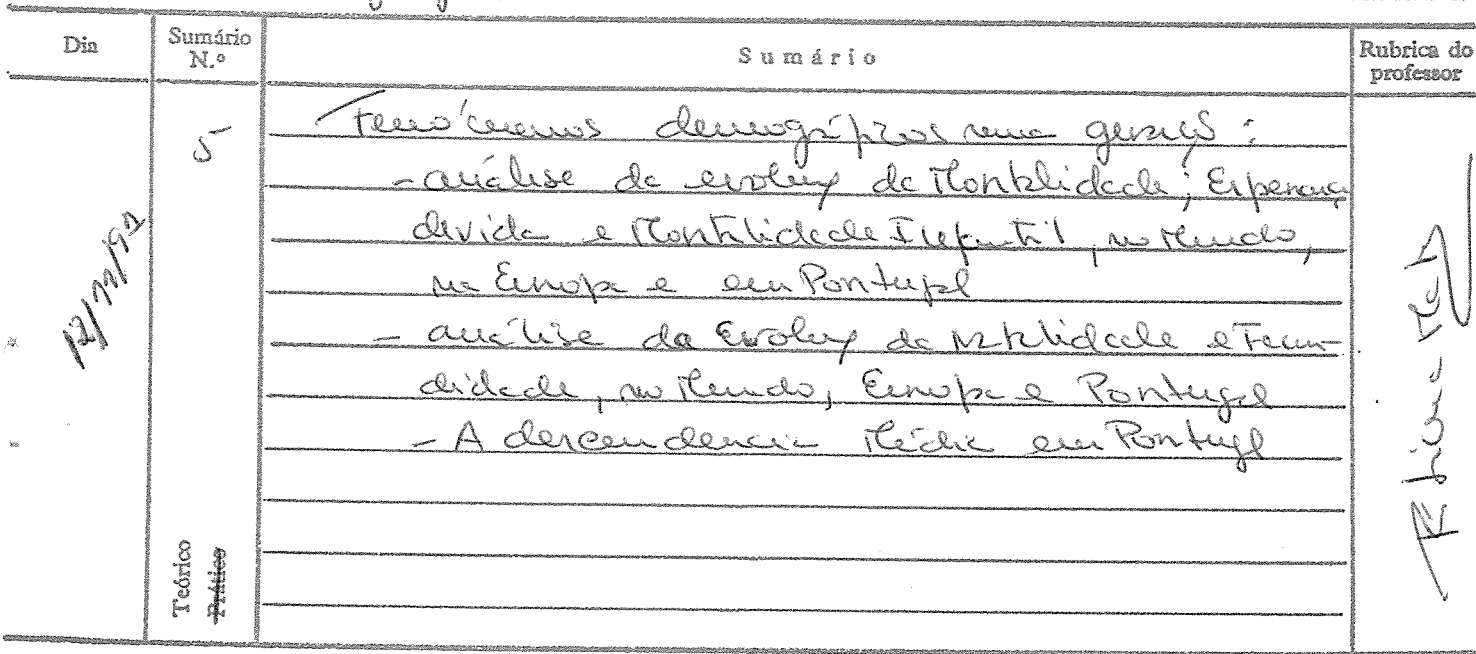 Dia
Sumário N.º
Sumário
Rubrica do professor
12/11/91
5
Fenómenos demográficos numa geração:
- análise da evolução da Mortalidade; Esperança
de vida e Mortalidade Infantil, no Mundo,
na Europa e em Portugal
- análise da Evolução da Natalidade e Fecun-
didade, no Mundo, Europa e Portugal
- A descendencia Média em Portugal
Teórico
Prático